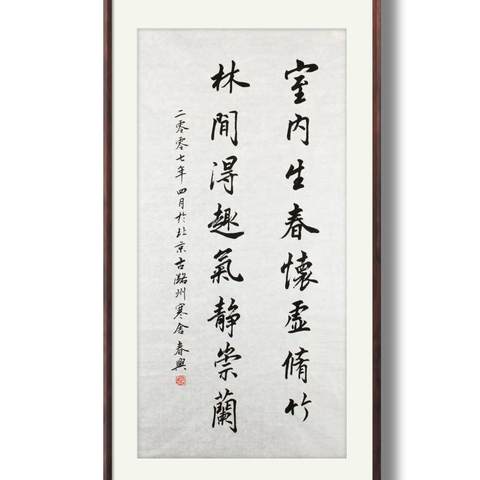 室内生春懷虛脩竹
林間得趣氣靜崇蘭
二零零七年四月於北京古潞州寒舍春興